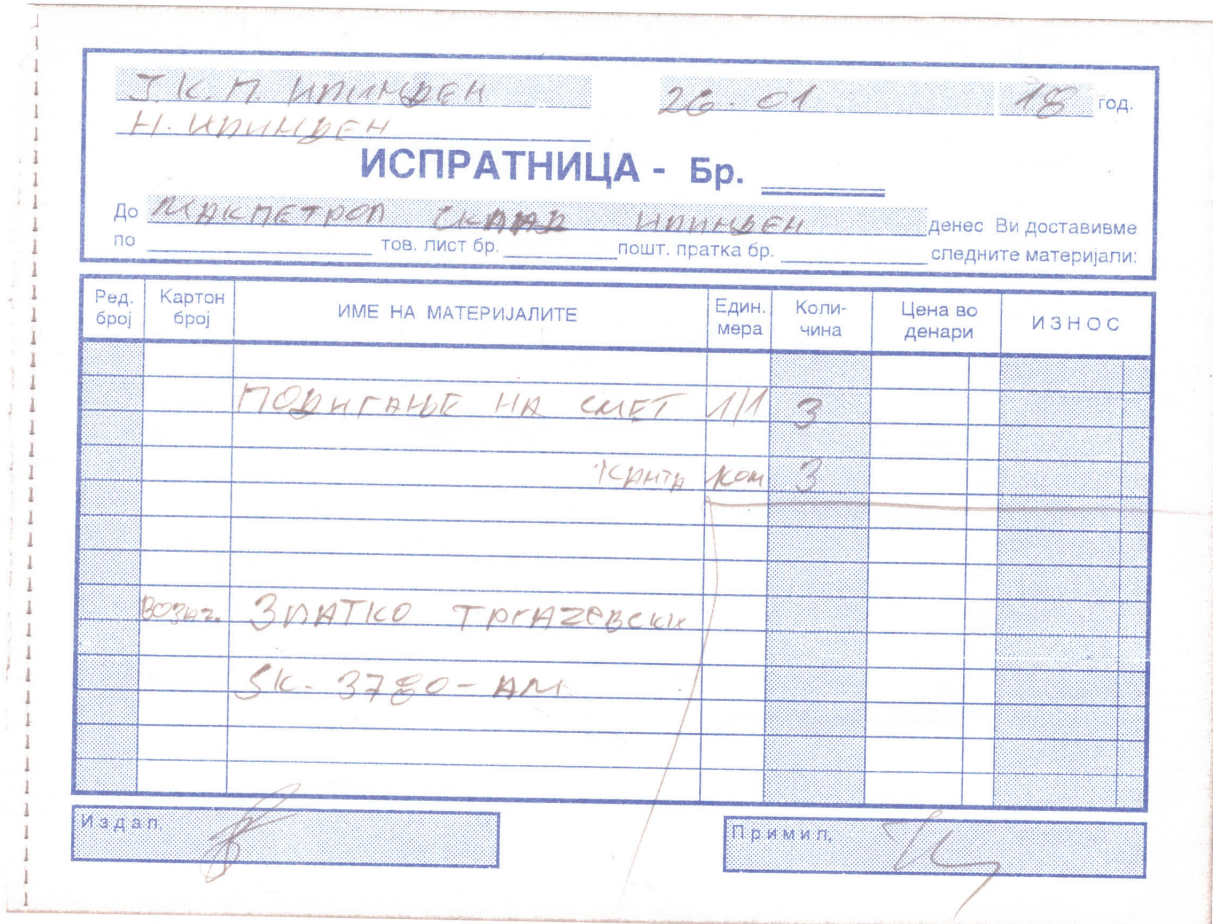 Ј.К.П. ИЛИНДЕН 26-01 18 год.
Н. ИЛИНДЕН
ИСПРАТНИЦА - Бр.
До МАКПЕТРОЛ СКЛАД ИЛИНДЕН денес Ви доставивме
по тов. лист бр. пошт. пратка бр. следните материјали:
Ред. број Картон број ИМЕ НА МАТЕРИЈАЛИТЕ Един. мера Коли-чина Цена во денари ИЗНОС
ПОДИГАЊЕ НА СМЕТ 1/1 3
КАНТА КОМ 3
ЗЛАТКО
SK-3780-AM
Издал, Примил,